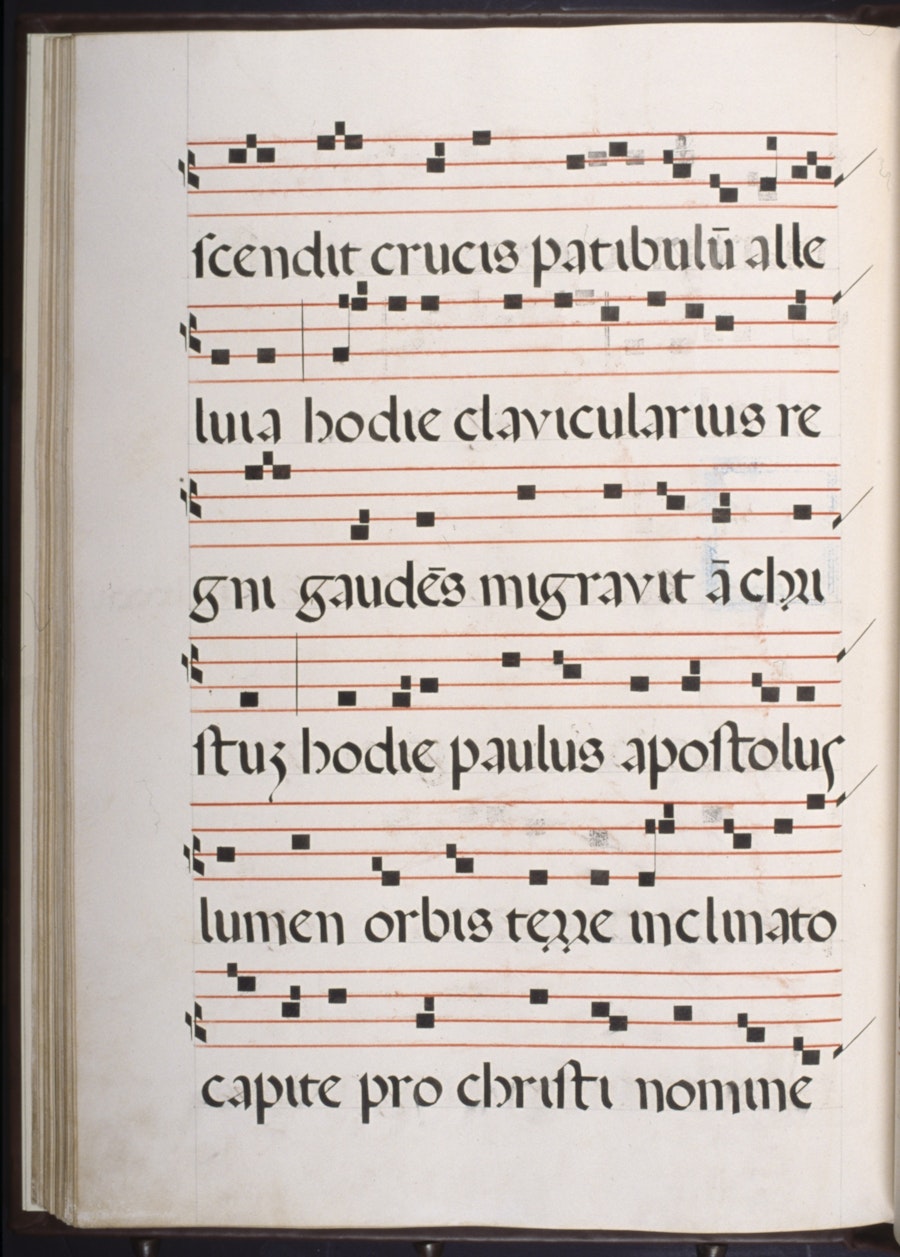 scendit crucis patibulū alle
luia hodie clavicularius re
gni gaudēs migravit ā chri
stuʒ hodie paulus apostolus
lumen orbis terre inclinato
capite pro christi nomine